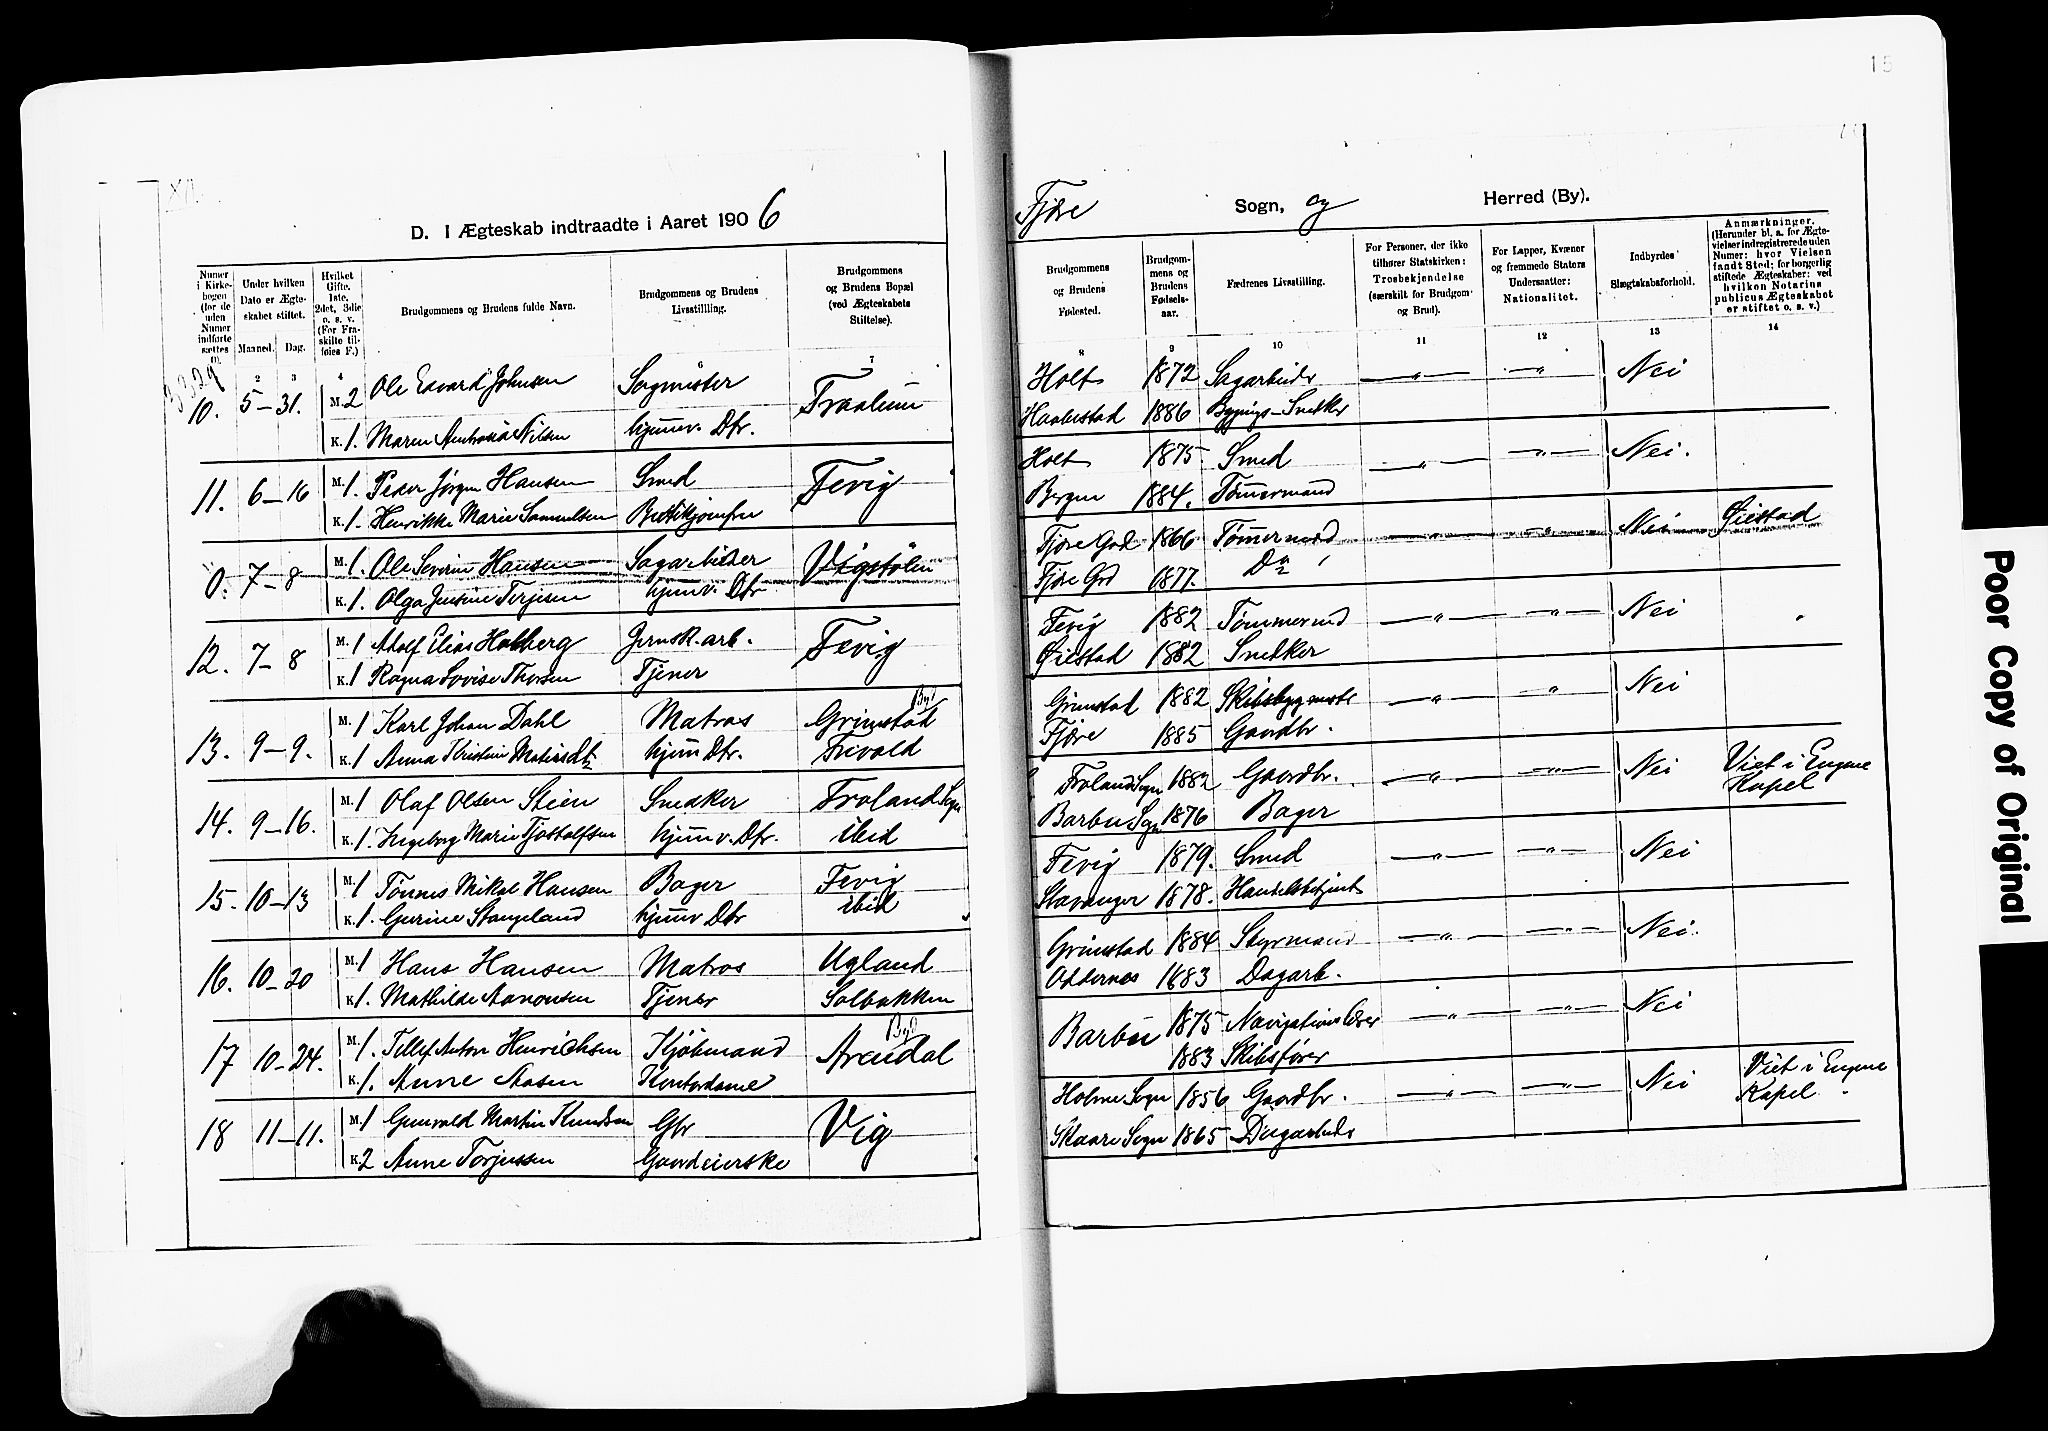 D. I Ægteskab indtraadte i Aaret 1906
Numer i Kirke-bogen (for de uden Numer indførte sættes 0).
Under hvilken Dato er Ægte-skabet stiftet.
Maaned. Dag.
Hvilket Gifte. 1ste, 2det, 3die o. s. v. (For Fra-skilte til-føies F.)
Brudgommens og Brudens fulde Navn.
Brudgommens og Brudens Livsstilling.
Brudgommens og Brudens Bopæl (ved Ægteskabets Stiftelse).
2 3 4 6 7
10. 5-31. M. 2 Ole Edvard Johnsen
K. 1. Maren Nilsen hjemv. Dtr.
11. 6-16 M. 1. Peder Jørgen Hansen Smed Fevig
K. 1. Henrikke Marie Samuelsen
0. 7-8 M. 1. Ole Severin Hansen Sagarbeider Vigstølen
K. 1. Olga Jensine Terjesen hjemv. Dtr
12. 7-8 M. 1 Adolf Elias Holberg Jernsk.arb. Fevig
K. 1 Ragna Lovise Thorsen Tjener
13. 9-9. M. 1 Karl Johan Dahl Matros Grimstad By
K. 1 Anna Kristine hjem Dtr. Frivold
14. 9-16. M. 1 Olaf Olsen Stien Snedker Froland Sogn
K. 1. Ingeborg Marie Tjostolfsen hjemv. Dtr. ibid
15. 10-13 M. 1 Tønnes Mikal Hansen Bager Fevig
K. 1. Gurine Stangeland hjemv Dtr ibid
16. 10-20 M. 1 Hans Hansen Matros Ugland
K. 1. Mathilde Aanonsen Tjener Solbakken
17 10-24. M. 1. Tellef Anton Henrichsen Kjøbmand Arendal By
K. 1. Anne Aasen Kontordame
18 11-11. M. 1 Gunvald Martin Knudsen Gbr Vig
K. 2 Anne Torjussen Gaardeierske
15
Fjære Sogn, og Herred (By).
Brudgommens og Brudens Fødested.
Brudgom-mens og Brudens Fødsels-aar.
Fædrenes Livsstilling.
For Personer, der ikke tilhører Statskirken: Trosbekjendelse (særskilt for Brudgom og Brud).
For Lapper, Kvæner og fremmede Staters Undersaatter: Nationalitet.
Indbyrdes Slægtskabsforhold.
Anmærkninger. (Herunder bl. a. for Ægte-vielser indregistrerede uden Numer: hvor Vielsen fandt Sted; for borgerlig stiftede Ægteskaber: ved hvilken Notarius publicus Ægteskabet er stiftet o. s. v.)
8 9 10 11 12 13 14
Holt 1872 Sagarbeider — " — — " — Nei
1886 Bygnings-Snedker
Holt 1875 Smed — " — — " — Nei.
Bergen 1884. Tømmermand
Fjære Grd 1866 Tømmermand — " — — " — Nei Øiestad
Fjære Grd 1877. Do
Fevig 1882 Tømmermd — " — — " — Nei
Øiestad 1882 Snedker
Grimstad 1882 Skibsbygmstr — " — " Nei
Fjære 1885 Gaardbr.
Froland Sogn 1882 Gaardbr. — " — — " — Nei Viet i Eugene Kapel
Barbu Sogn 1876 Bager
Fevig 1879. Smed — " — — " — Nei
Stavanger 1878. Handelsbetjent
Grimstad 1884 Styrmand — " — — " — Nei.
Oddernes 1883 Dagarb.
Barbu 1875 Navigationslærer — " — — " — Nei
1883 Skibsfører
Holme Sogn 1856 Gaardbr. — " — — " — Nei Viet i Eugene Kapel
Skaare Sogn 1865 Dagarbeider
Poor Copy of Original